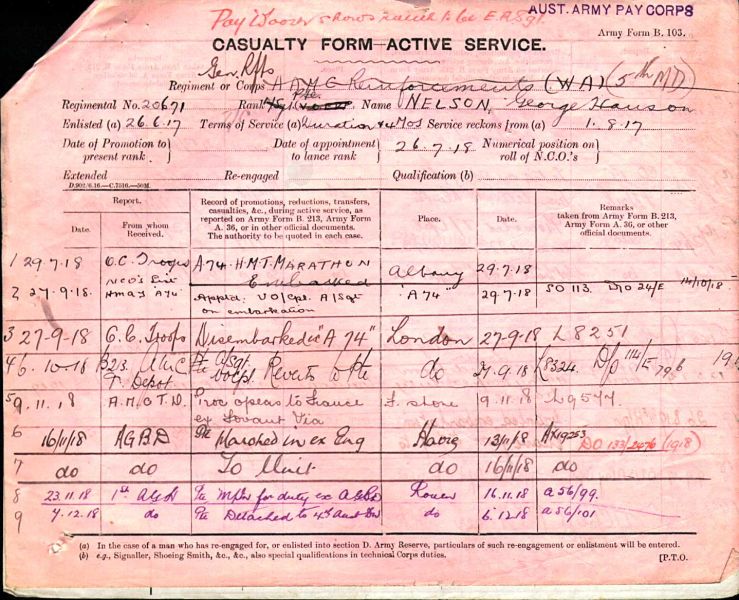 Pay Woozer shows rank to be E.R.Sgt.
AUST. ARMY PAY CORPS
Army Form B. 103.
CASUALTY FORM—ACTIVE SERVICE.
Gen. Rfts
Regiment or Corps A A M C Reinforcements (W A) (5th MD)
Regimental No. 20671 Rank Pte Name NELSON, George Hanson
Enlisted (a) 26.6.17 Terms of Service (a) Duration & 4 Mos Service reckons from (a) 1.8.17
Date of Promotion to present rank } Date of appointment to lance rank } 26.7.18 Numerical position on roll of N.C.O.'s }
Extended Re-engaged Qualification (b)
D.902/6.16.—C.7516.—50M.
Report. Record of promotions, reductions, transfers, casualties, &c., during active service, as reported on Army Form B. 213, Army Form A. 36, or in other official documents. The authority to be quoted in each case. Place. Date. Remarks taken from Army Form B. 213, Army Form A. 36, or other official documents.
Date. From whom Received.
1 29.7.18 O.C. Troops A74 H.M.T. MARATHON Embarked Albany 29.7.18
2 27.9.18 NCO's List HMAT A74 Apptd. VO/Cpl. A/Sgt on embarkation "A 74" 29.7.18 SO 113. DO 24/E 14/10/18
3 27-9-18 O.C. Troops Disembarked "A 74" London 27-9-18 L8251
4 6-10-18 B213 T. Depot A/Sgt Vo/Cpl Reverts to Pte do 27.9.18 L8324
5 9.11.18 A.M.O T.D. Proc o'seas to France ex Fovant Via F. stone 9.11.18 L9577
6 16/11/18 AGBD Pte Marched in ex Eng Havre 13/11/18 AX19253 DO 133/2476 (1918)
7 do do To Unit do 16/11/18 do
8 23.11.18 1st A.G.H Pte for duty ex AGBD Rouen 16.11.18 a 56/99.
9 7.12.18 do Pte Detached to 4th Aust do 6.12.18 a 56/101
(a) In the case of a man who has re-engaged for, or enlisted into section D. Army Reserve, particulars of such re-engagement or enlistment will be entered.
(b) e.g., Signaller, Shoeing Smith, &c., &c., also special qualifications in technical Corps duties. [P.T.O.